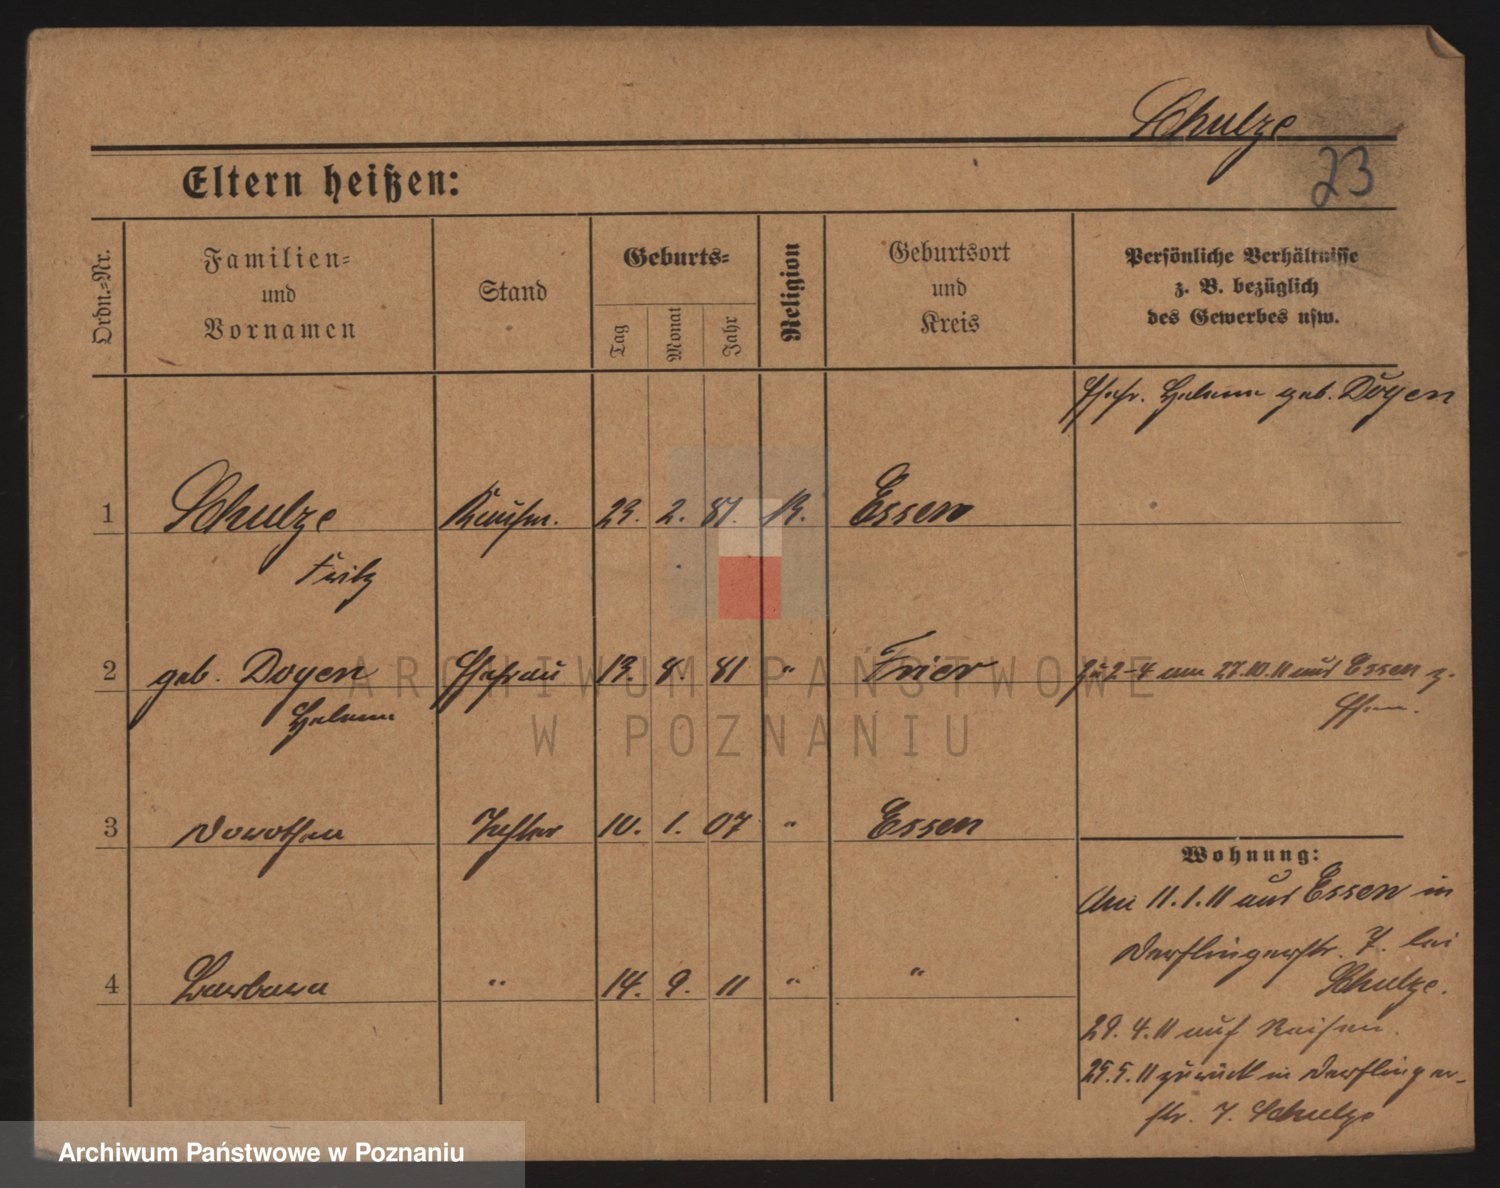 Schulze
23
Eltern heißen:
Ordn.-Nr.
Familien-
und
Vornamen
Stand
Geburts-
Tag
Monat
Jahr
Religion
Geburtsort
und
Kreis
Persönliche Verhältnisse
z. B. bezüglich
des Gewerbes usw.
Ehefr. Helene geb. Doyen
1 Schulze Kaufm. 29. 2. 81. K. Essen
Fritz
2 geb. Doyen Ehefrau 13. 8. 81 " Trier zu 2-4 am 27.10.11 aus Essen z.
Helene Ehem.
3 Dorothea Tochter 10. 1. 07 " Essen
Wohnung:
4 Barbara " 14. 9. 11 " "
Am 11.1.11 aus Essen in
Derflingerstr. 7. bei
Schulze.
29. 4. 11 auf Reisen.
25.5.11 zurück in Derflinger-
str. 7. Schulze
ARCHIWUM PAŃSTWOWE
W POZNANIU
Archiwum Państwowe w Poznaniu